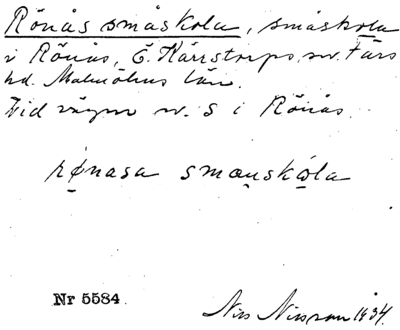 Rönås småskola, småskola
i Rönås, Ö. Kärrstorps sn. Färs
hd. Malmöhus län.
Vid vägen nr. 5 i Rönås.
rønasa smauskǻla
Nr 5584
Nils Nilsson 1934.